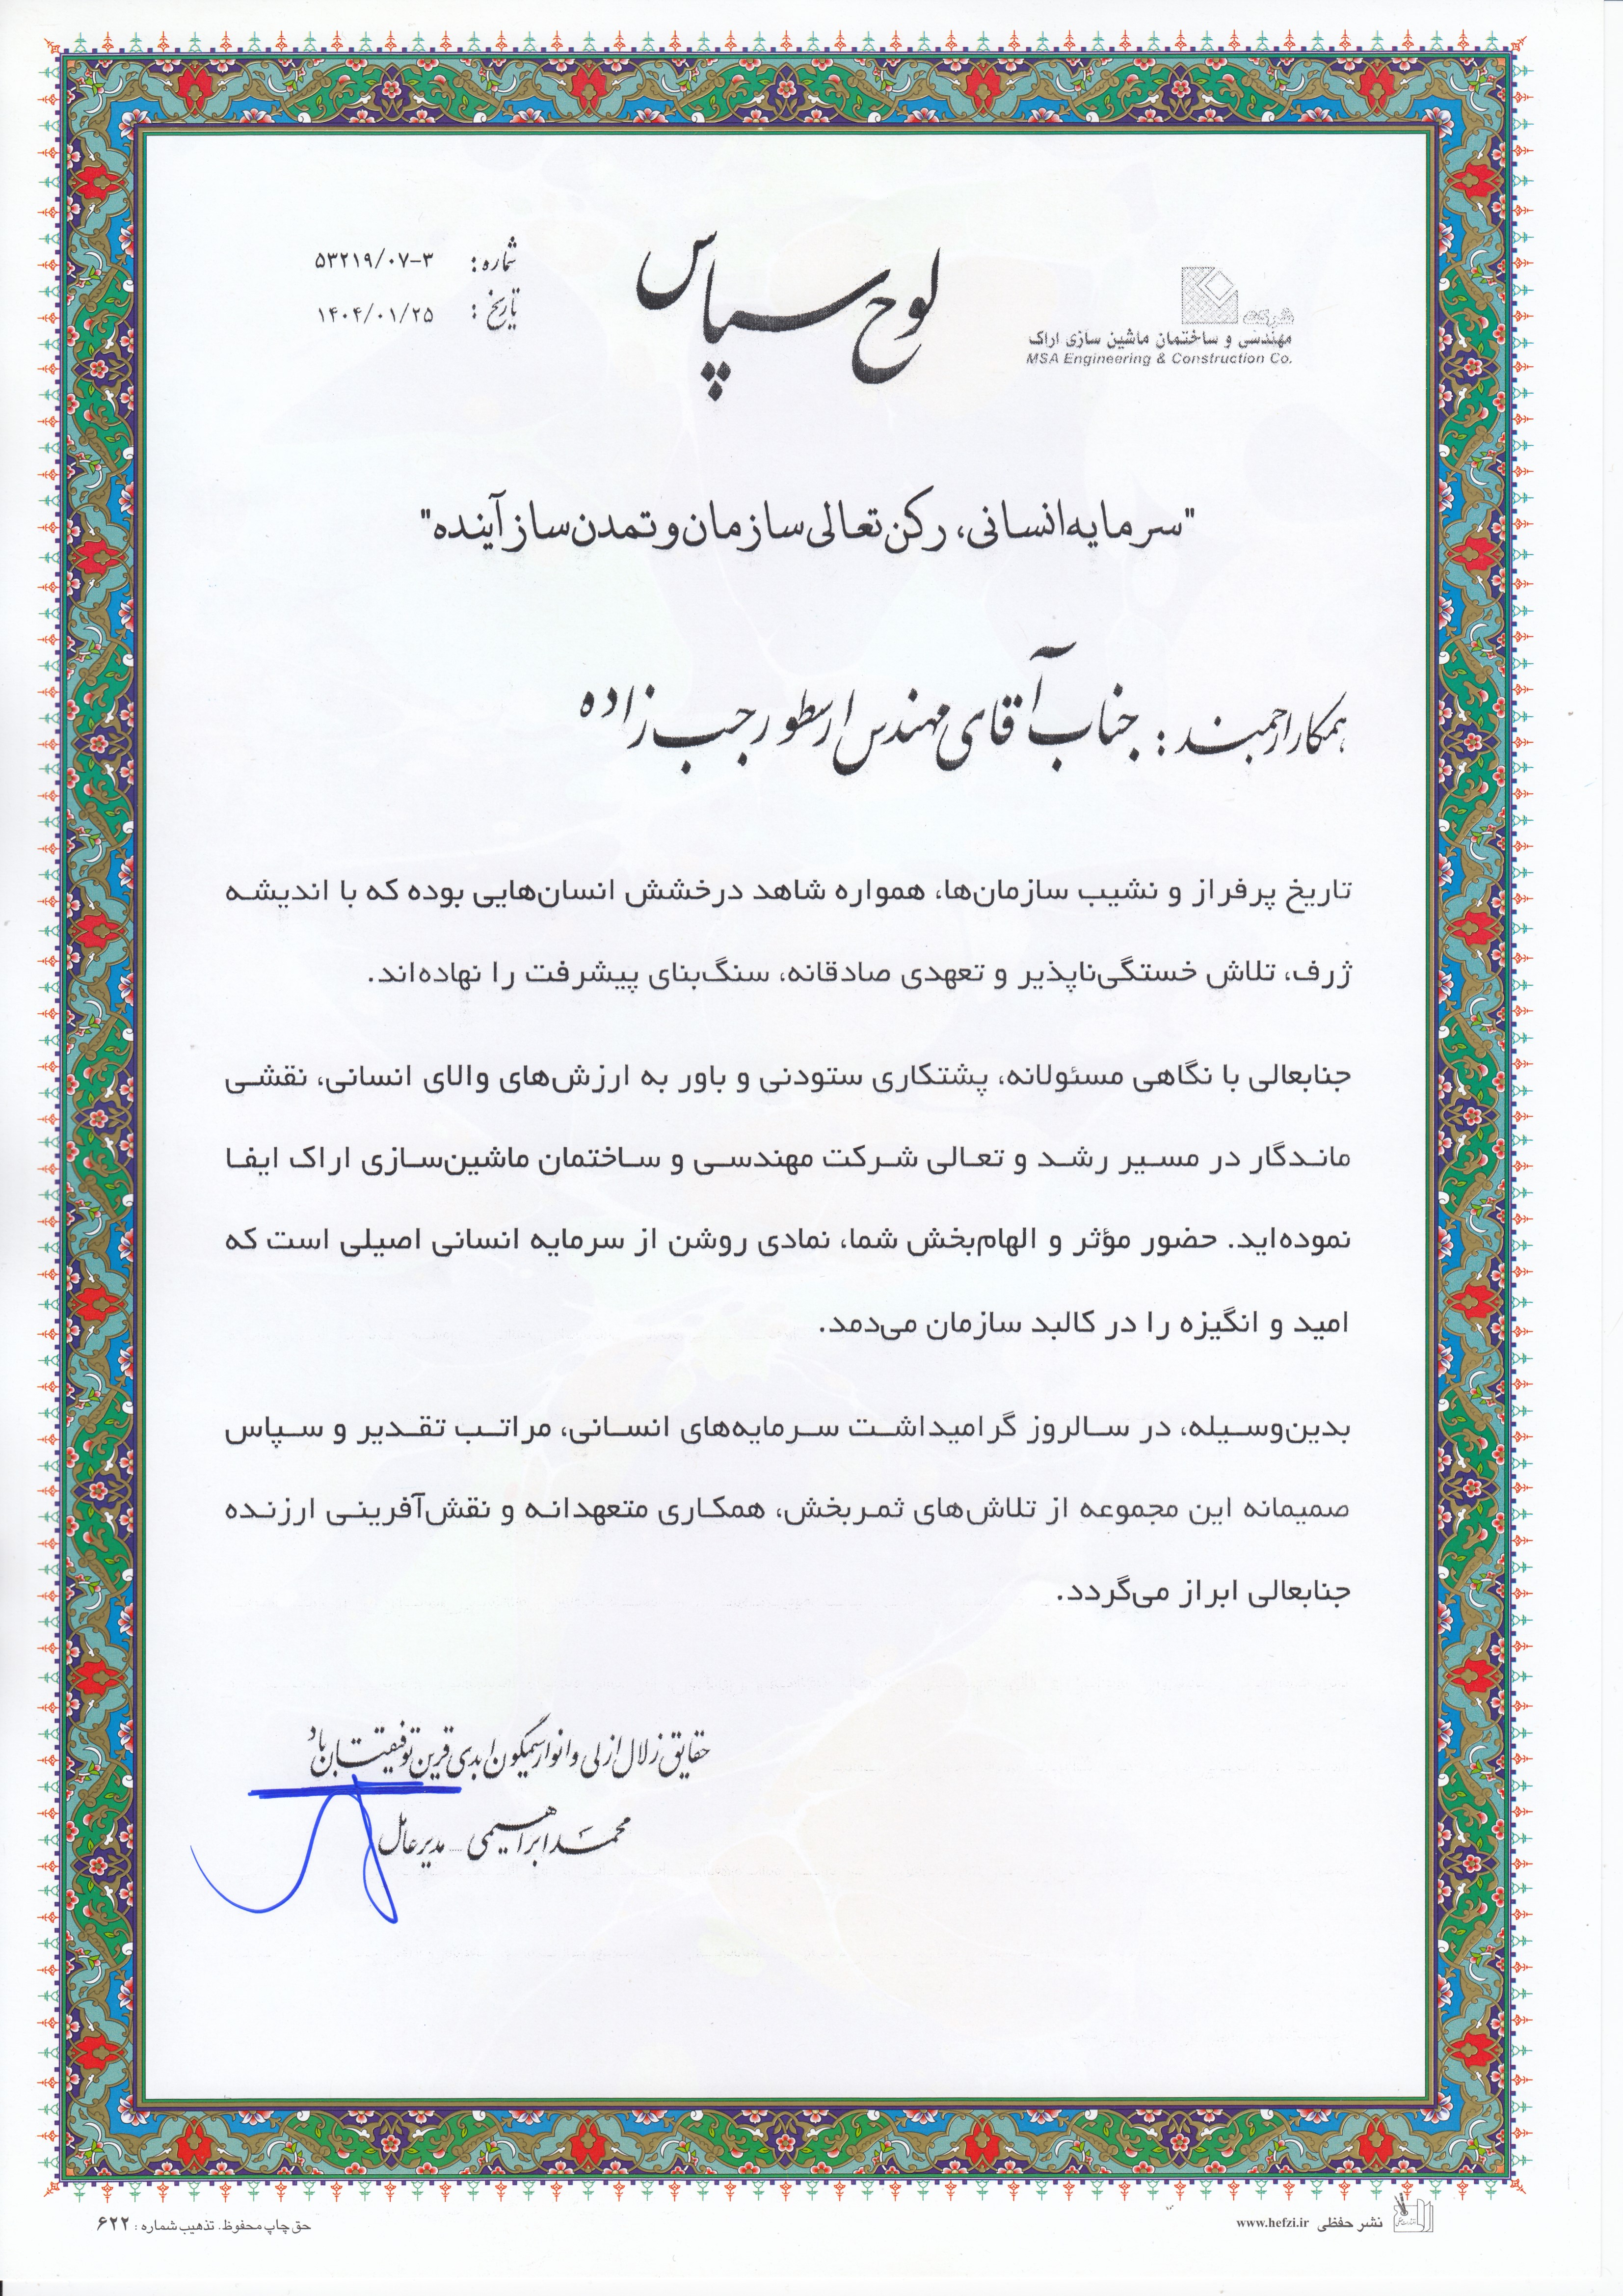 لوح سپاس
شرکت
مهندسی و ساختمان ماشین سازی اراک
MSA Engineering & Construction Co.
شماره: ۵۳۲۱۹/۰۷-۳
تاریخ: ۱۴۰۴/۰۱/۲۵
"سرمایه انسانی، رکن تعالی سازمان و تمدن ساز آینده"
همکار ارجمند: جناب آقای مهندس ارسطو رجب زاده
تاریخ پرفراز و نشیب سازمان‌ها، همواره شاهد درخشش انسان‌هایی بوده که با اندیشه
ژرف، تلاش خستگی‌ناپذیر و تعهدی صادقانه، سنگ‌بنای پیشرفت را نهاده‌اند.
جنابعالی با نگاهی مسئولانه، پشتکاری ستودنی و باور به ارزش‌های والای انسانی، نقشی
ماندگار در مسیر رشد و تعالی شرکت مهندسی و ساختمان ماشین‌سازی اراک ایفا
نموده‌اید. حضور مؤثر و الهام‌بخش شما، نمادی روشن از سرمایه انسانی اصیلی است که
امید و انگیزه را در کالبد سازمان می‌دمد.
بدین‌وسیله، در سالروز گرامیداشت سرمایه‌های انسانی، مراتب تقدیر و سپاس
صمیمانه این مجموعه از تلاش‌های ثمربخش، همکاری متعهدانه و نقش‌آفرینی ارزنده
جنابعالی ابراز می‌گردد.
حقایق زلال ازلی و انوار سیمگون ابدی قرین توفیقتان باد
محمد ابراهیمی - مدیرعامل
نشر حفظی www.hefzi.ir
حق چاپ محفوظ. تذهیب شماره: ۶۲۲